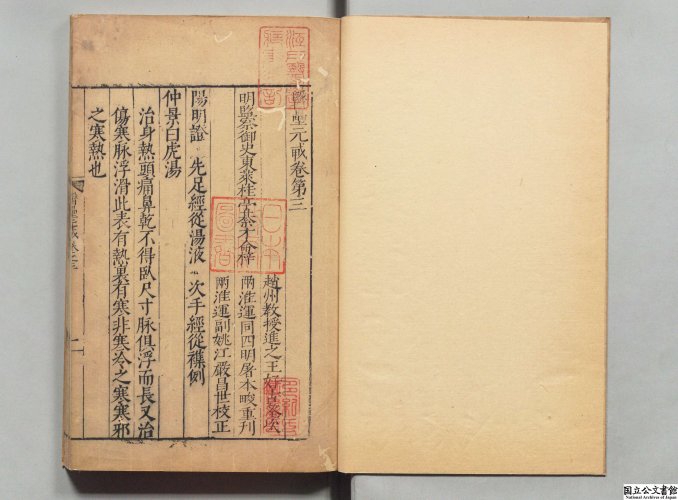 聖元戒卷第三
趙州教授進之王好古
明監察御史東萊桂亭
兩淮運同四明屠本畯重刊
兩淮運副姚江嚴昌世校正
陽明證 先足經從湯液 次手經從襍例
仲景白虎湯
治身熱頭痛鼻乾不得臥尺寸脉俱浮而長又治
傷寒脉浮滑此表有熱裏有寒非寒冷之寒寒邪
之寒熱也
日本
国立公文書館
National Archives of Japan